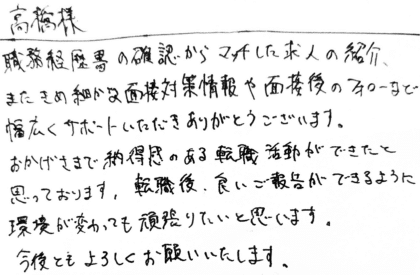 高橋様
職務経歴書の確認からマッチした求人の紹介、
またきめ細かな面接対策情報や面接後のフォローまで
幅広くサポートいただきありがとうございます。
おかげさまで納得感のある転職活動ができたと
思っております。転職後、良いご報告ができるように
環境が変わっても頑張りたいと思います。
今後ともよろしくお願いいたします。